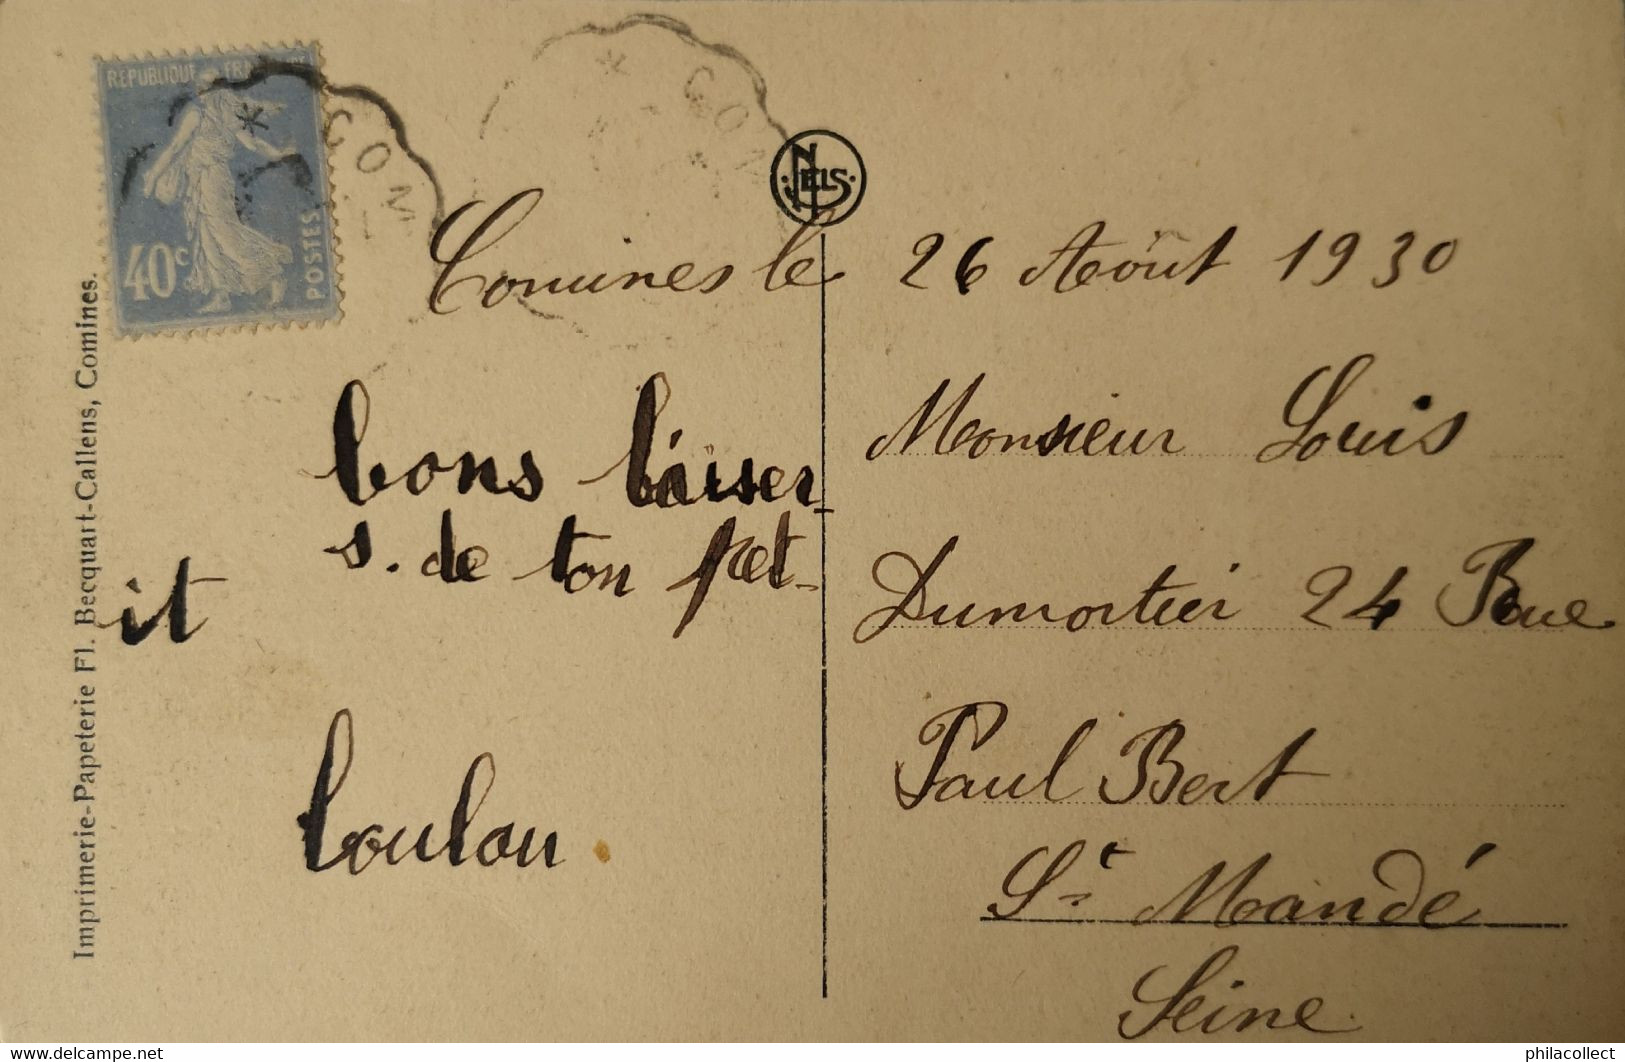 REPUBLIQUE FRANÇAISE
40c
POSTES
COM
COM
NELS
Imprimerie-Papeterie Fl. Becquart-Callens, Comines.
Comines le 26 Août 1930
bons baiser-
s. de ton pet-
it
loulou
Monsieur Louis
Dumortier 24 Rue
Paul Bert
St Mandé
Seine
philacollect